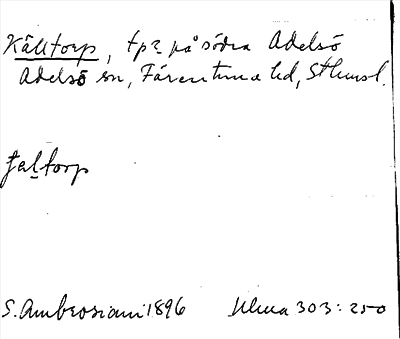 Källtorp, tp? på södra Adelsö
Adelsö sn, Färentuna hd, Sthmsl.
jaltorp
S. Ambrosiani 1896 Ulma 303:250